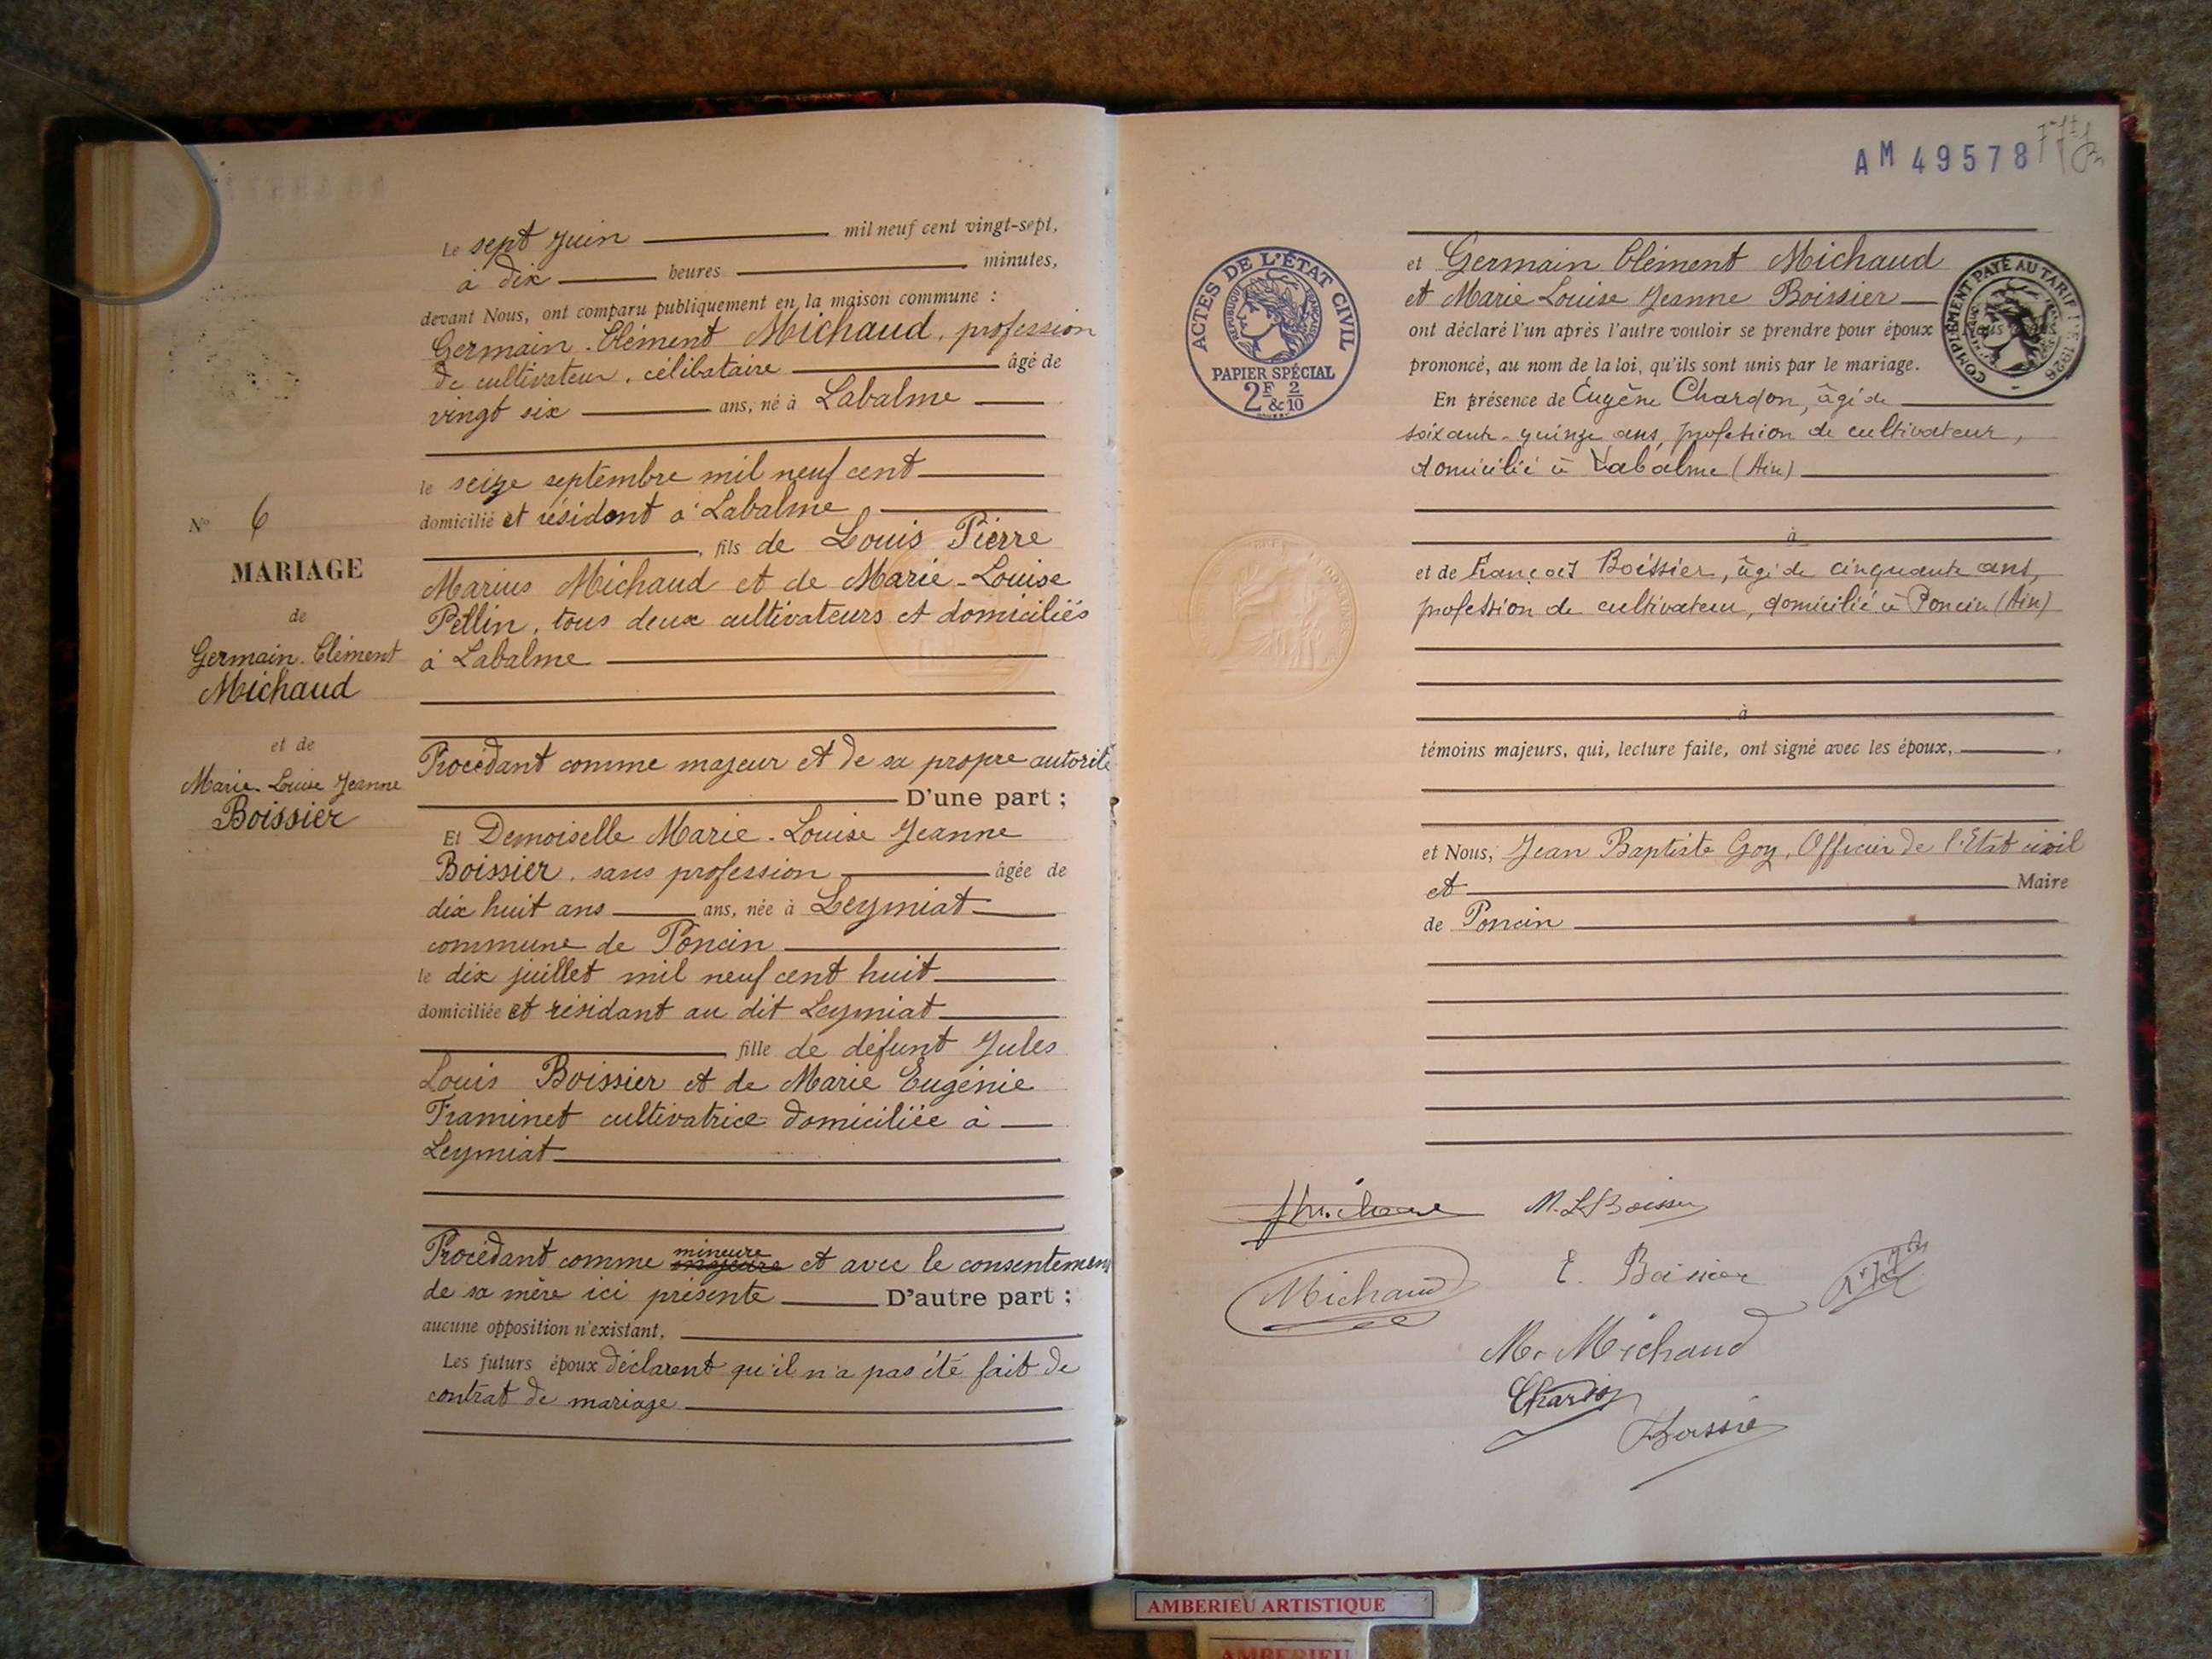 N° 6
MARIAGE
de
Germain-Clément
Michaud
et de
Marie-Louise Jeanne
Boissier
Le sept Juin mil neuf cent vingt-sept,
à dix heures minutes,
devant Nous, ont comparu publiquement en la maison commune :
Germain-Clément Michaud, profession
de cultivateur, célibataire âgé de
vingt six ans, né à Labalme
le seize septembre mil neuf cent
domicilié et résidant à Labalme
, fils de Louis Pierre
Marius Michaud et de Marie-Louise
Pellin, tous deux cultivateurs et domiciliés
à Labalme
Procédant comme majeur et de sa propre autorité
D'une part ;
Et Demoiselle Marie-Louise Jeanne
Boissier, sans profession âgée de
dix huit ans ans, née à Leymiat
commune de Poncin
le dix juillet mil neuf cent huit
domiciliée et résidant au dit Leymiat
fille de défunt Jules
Louis Boissier et de Marie Eugénie
Traminet cultivatrice domiciliée à
Leymiat
mineure
Procédant comme majeure et avec le consentement
de sa mère ici présente D'autre part ;
aucune opposition n'existant,
Les futurs époux déclarent qu'il n'a pas été fait de
contrat de mariage
AM 49578
ACTES DE L'ÉTAT CIVIL
RÉPUBLIQUE FRANÇAISE
PAPIER SPÉCIAL
2F & 2/10
COMPLÉMENT PAYÉ AU TARIF DE 1926
et Germain Clément Michaud
et Marie-Louise Jeanne Boissier
ont déclaré l'un après l'autre vouloir se prendre pour époux
prononcé, au nom de la loi, qu'ils sont unis par le mariage.
En présence de Eugène Chardon, âgé de
soixante-quinze ans, profession de cultivateur,
domicilié à Labalme (Ain)
à
et de François Boissier, âgé de cinquante ans,
profession de cultivateur, domicilié à Poncin (Ain)
à
témoins majeurs, qui, lecture faite, ont signé avec les époux, ,
et Nous, Jean Baptiste Goy, Officier de l'Etat civil
et Maire
de Poncin
M. L Boissier
Michaud
E. Boissier
M. Michaud
Chardon
AMBERIEU ARTISTIQUE
AMBERIEU